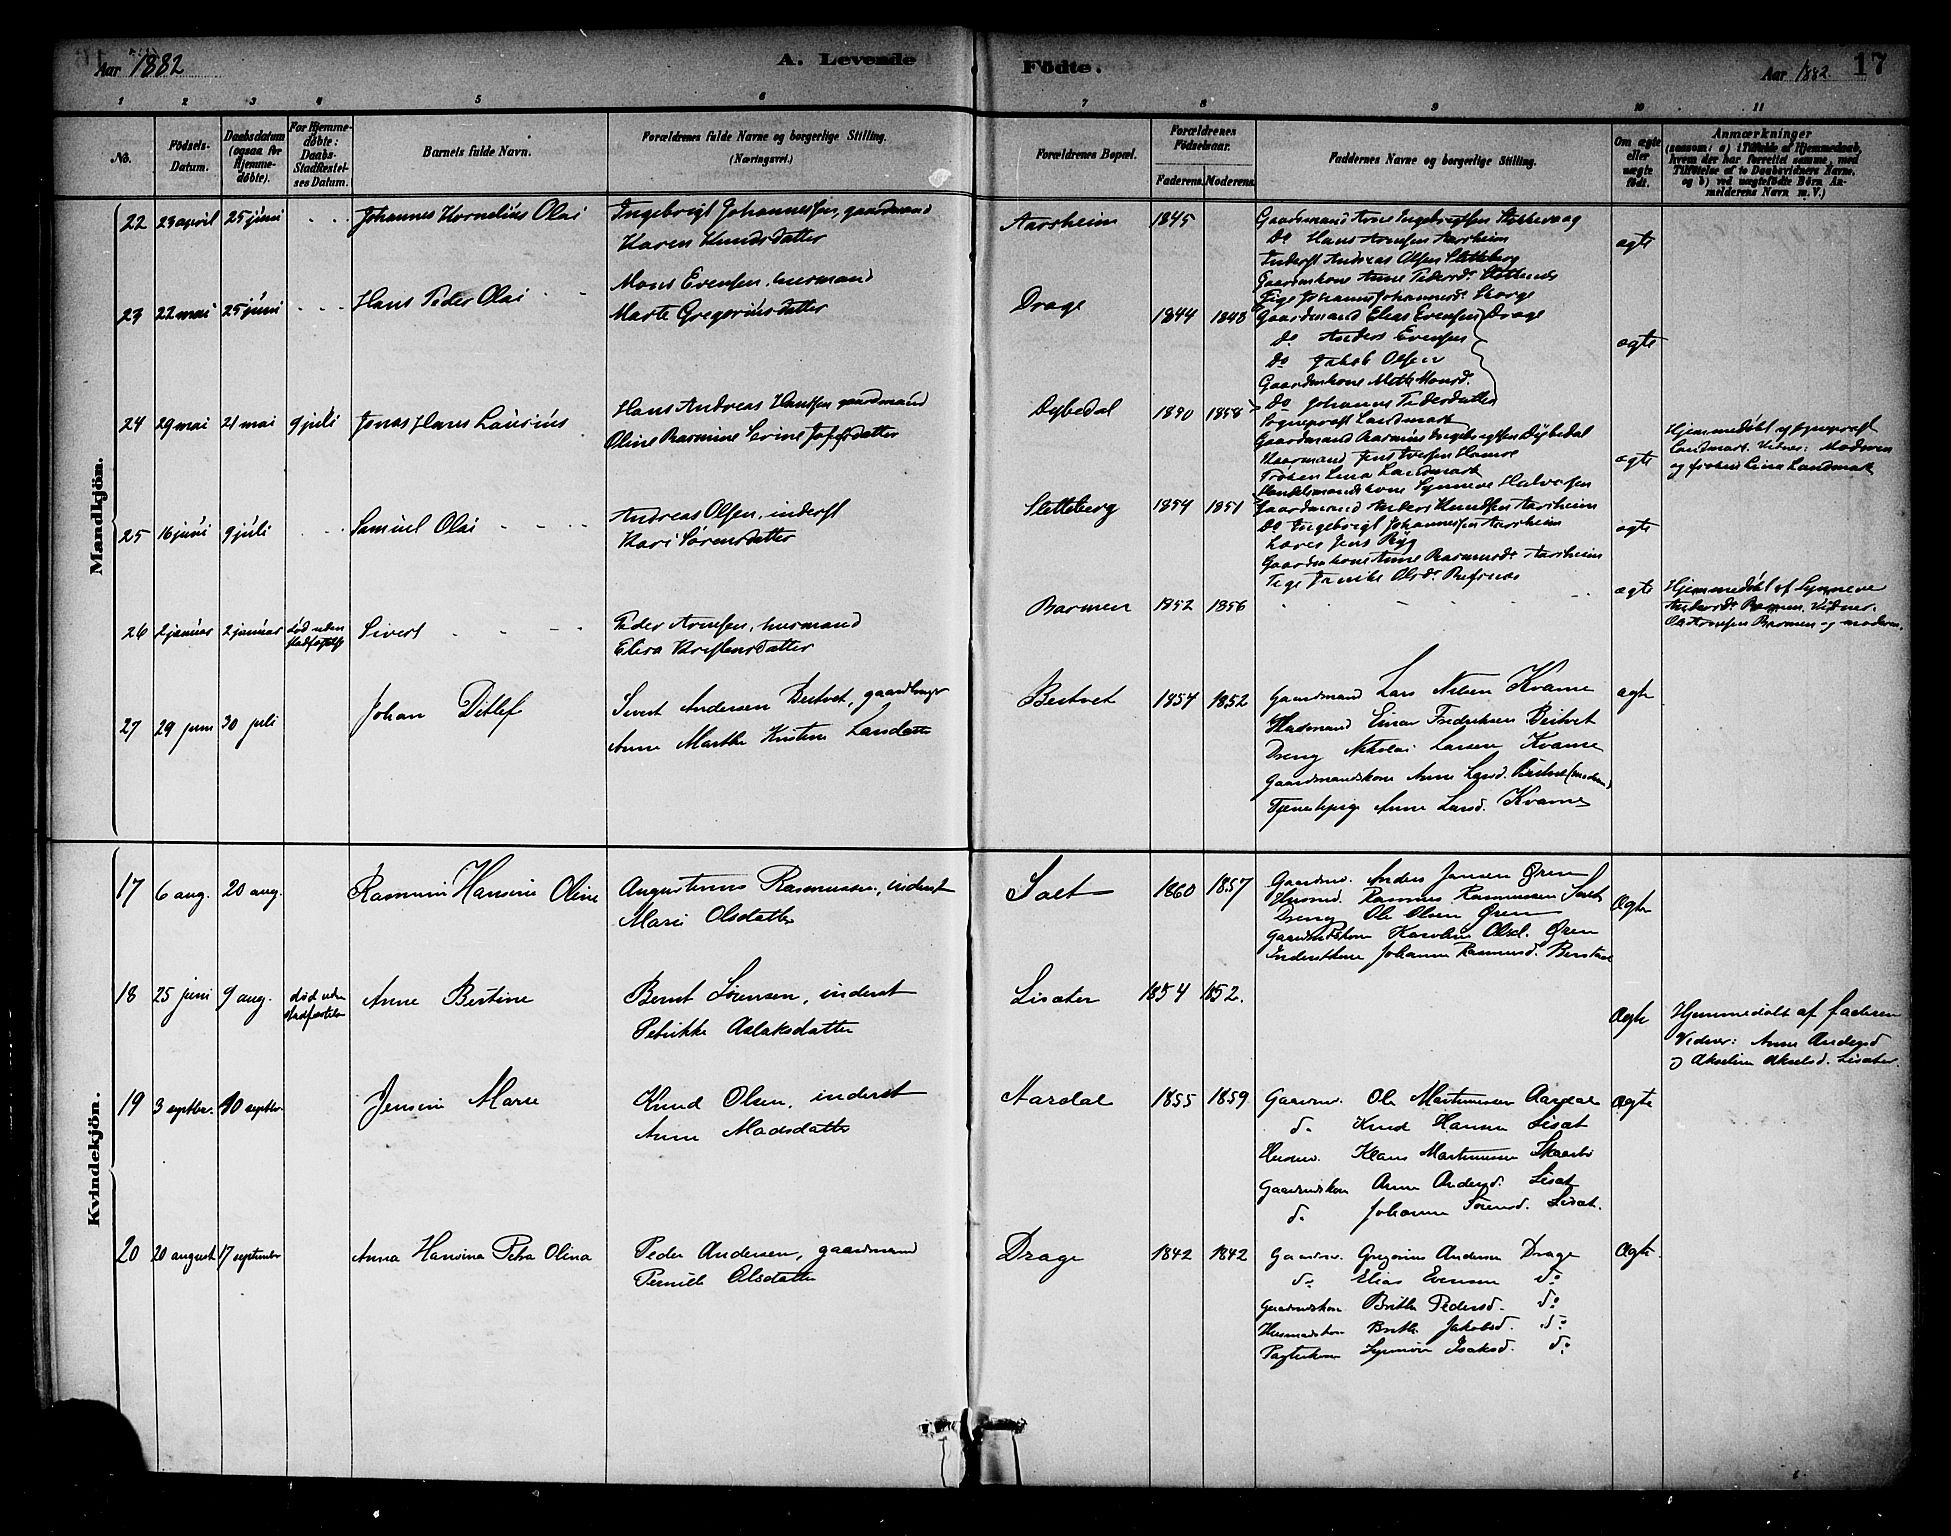 Aar 1882
A. Levende
Fødte.
Aar 1882.
17
1 2 3 4 5 6 7 8 9 10 11
No.
Fødsels-Datum.
Daabsdatum (ogsaa for Hjemmedøbte).
For Hjemmedøbte: Daabs-Stadfæstelses Datum.
Barnets fulde Navn.
Forældrenes fulde Navne og borgerlige Stilling. (Næringsvei.)
Forældrenes Bopæl.
Forældrenes Fødselsaar.
Faderens. Moderens.
Faddernes Navne og borgerlige Stilling.
Om ægte eller uægte født.
Anmærkninger
(saasom: a) i Tilfælde af Hjemmedaab,
hvem der har forrettet samme, med
Tilføielse af to Daabsvidners Navne,
og b) ved uægtefødte Børn Anmelderens Navn m. V.)
Mandkjøn.
22 23 april 25 juni Johannes Kornelius Olai Ingebrigt Johannessen, gaardmand Aarsheim 1845 ægte
Karen Knudsdatter
Gaardmand Arne Ingebrigtsen
Do Hans Arnesen Aarsheim
Inderst Andreas Olsen Sletteberg
Gaardmkone Anne Pedersdr
Pige Johanne Johannesdr
23 22 mai 25 juni Hans Peder Olai Mons Evensen, husmand Drage 1844 1848 ægte
Marte Gregoriusdatter
Gaardmand Elias Evensen Drage
Do Anders Evensen
Do Jakob Olsen
Gaardmkone Mette Monsd.
Do Johanne Pedersdatter
24 29 mai 21 mai 9 juli Jonas Hans Laurius Hans Andreas Hansen gaardmand Dybedal 1858 ægte
Oline Rasmine Serine
Sogneprest Landmark
Gaardmand Rasmus Ingebrigtsen Dybedal
Jens
Frøken Lina Landmark
Handelsmandskone Synneve Halvorsen
Hjemmedøbt af sogneprest
Landmark. Vidner: Moderen
og frøken Lina Landmark
25 16 juni 9 juli Samuel Olai Andreas Olsen, inderst Sletteberg 1854 1851 ægte
Kari Sørensdatter
Gaardmand Anders Knudsen Aarsheim
Do Ingebrigt Johannessen Aarsheim
Jens
Gaardmkone Anne Rasmusdr Aarsheim
Pige Olsdr.
26 2 januar 2 januar død uden stadfæstelse Sivert Peder Arnesen, husmand Barmen 1852 1856 ægte
Elisa
Hjemmedøbt af Synneve
Barmen. Vidner:
Ole Arnesen Barmen og moderen.
27 29 juni 30 juli Johan Ditlef Sivert Andersen Beitvet, gaardbruger Beitvet 1854 1852 ægte
Anne Marthe Kristine Larsdatter
Gaardmand Lars Nilsen Kvame
Husmand Einar Fredriksen Beitvet
Dreng Nikolai Larsen Kvame
Gaardmandskone Anne Larsd. Beitvet (moderen)
Tjenestepige Anne Larsd. Kvame
Kvindekjøn.
17 6 aug. 20 aug. Rasmine Hansine Oline Augustinus Rasmussen, inderst Salt 1860 1857 Ægte
Marie Olsdatter
Gaardm. Anders Jansen Øren
Husmd. Rasmus Rasmussen Salt
Dreng Ole Olsen Øren
Gaardmdskone Karoline Olsd. Øren
Inderstkone Johanne Rasmusd. Berstad
18 25 juni 9 aug. død uden stadfæstelse Anne Bertine Bernt Sørensen, inderst Lisæter 1854 1852. Ægte
Petrikke Aslaksdatter
Hjemmedøbt af faderen
Vidner: Anne Andersd
Akselsd. Lisæter.
19 3 septbr. 10 septbr. Jensine Marie Knud Olsen, inderst Aardal 1855 1859 Ægte
Anne Madsdatter
Gaardm. Ole Martinussen Aardal
do Knud Hansen Lisæt
Husm. Klaus Martinussen Skaarbø
Gaardmdskone Anne Andersd. Lisæt
do Johanne Sørensd. Lisæt.
20 20 august 17 september Anna Hansina Petra Olina Peder Andersen, gaardmand Drage 1842 1842 Ægte
Pernille Olsdatter
Gaardm. Gregorius Andersen Drage
do Elias Evensen do
Gaardmdskone Brithe Pedersd. do
Husmandskone Brithe Jakobsd. do
Pagterkone Synnøve Isaksd. do